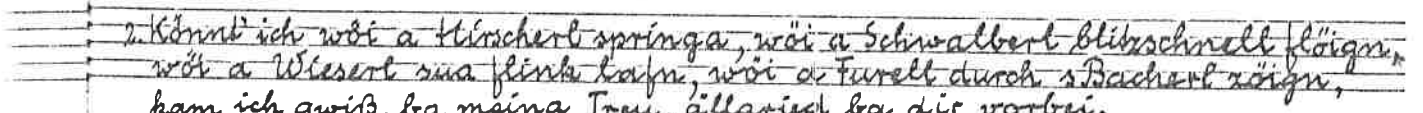 2. Könnt' ich wöi a Hirscherl springa, wöi a Schwalberl blitzschnell flöign,
wöi a Wieserl sua flink lafn, wöi a Furell durch s Bacherl zöign,
kam ich gwiß ba meina Treu ba dir vorbei.